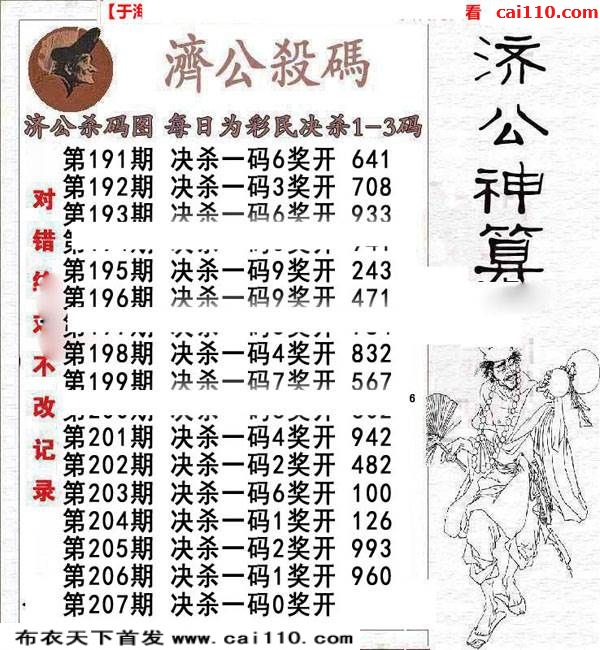 【于海
看 cai110.com
濟公殺碼
济公神算
济公杀码图 每日为彩民决杀1-3码
第191期 决杀一码6奖开 641
第192期 决杀一码3奖开 708
第193期 决杀一码6奖开 933
第195期 决杀一码9奖开 243
第196期 决杀一码9奖开 471
第198期 决杀一码4奖开 832
第199期 决杀一码7奖开 567
6
第201期 决杀一码4奖开 942
第202期 决杀一码2奖开 482
第203期 决杀一码6奖开 100
第204期 决杀一码1奖开 126
第205期 决杀一码2奖开 993
第206期 决杀一码1奖开 960
第207期 决杀一码0奖开
对错 不改记录
布衣天下首发 www.cai110.com